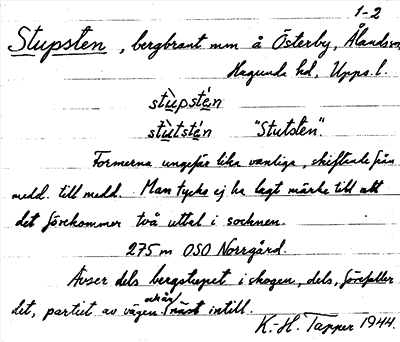 1-2
Stupsten, bergbrant mm å Österby, Ålands sn,
Hagunda hd, Upps. l.
stùpstén
stùtstén "Stutsten".
Formerna ungefär lika vanliga, skiftande från
medd. till medd. Man tycks ej ha lagt märke till att
det förekommer två uttal i socknen.
275 m OSO Norrgård.
Avser dels bergstupet i skogen, dels, förefaller
det, partiet av vägen näst intill.
K.-H. Tapper 1944.